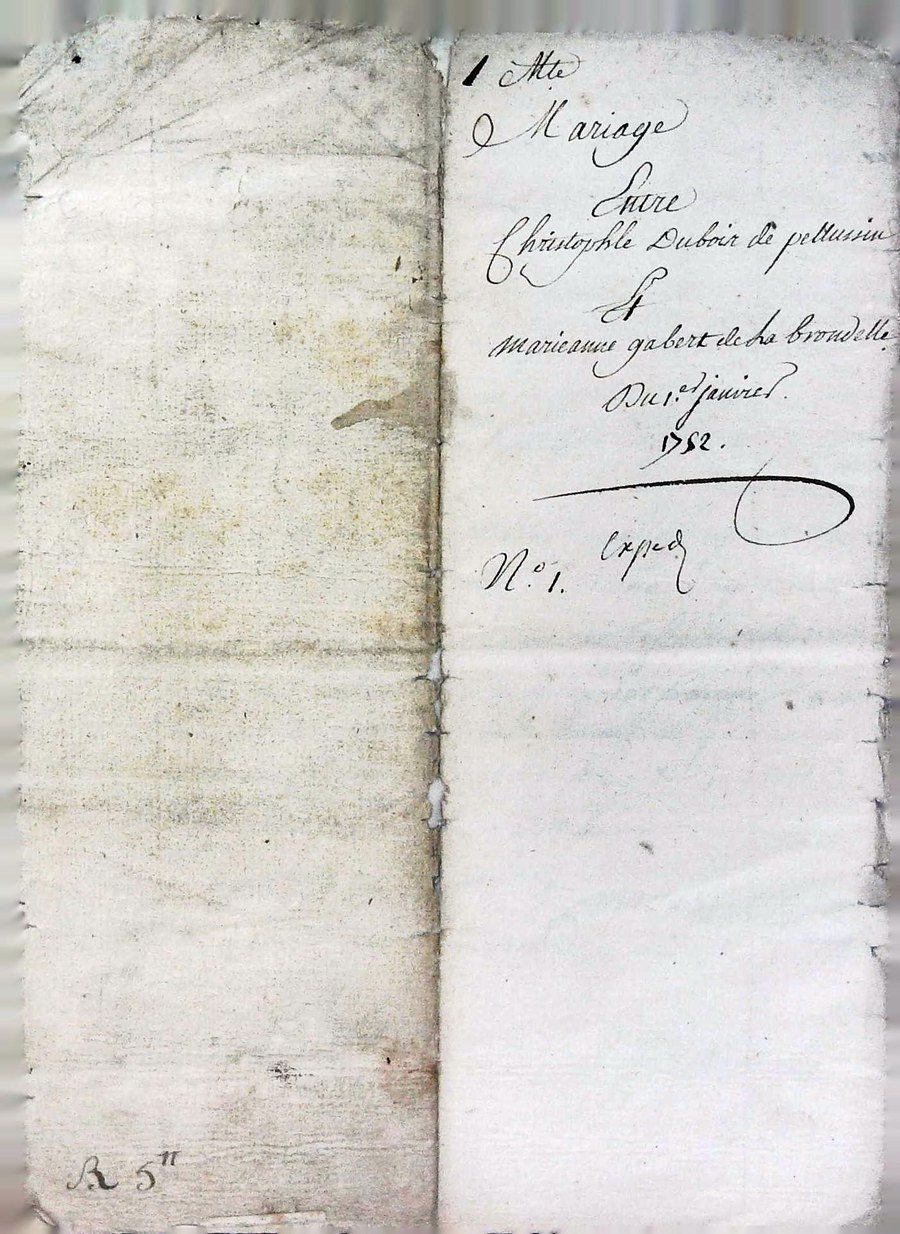 1 Mte
Mariage
Entre
Christophle Dubois de pellussin
Et
Marieanne gabert de La brondelle
Du 1.er janvier.
1752.
exped
N.o 1.
R 5 ll